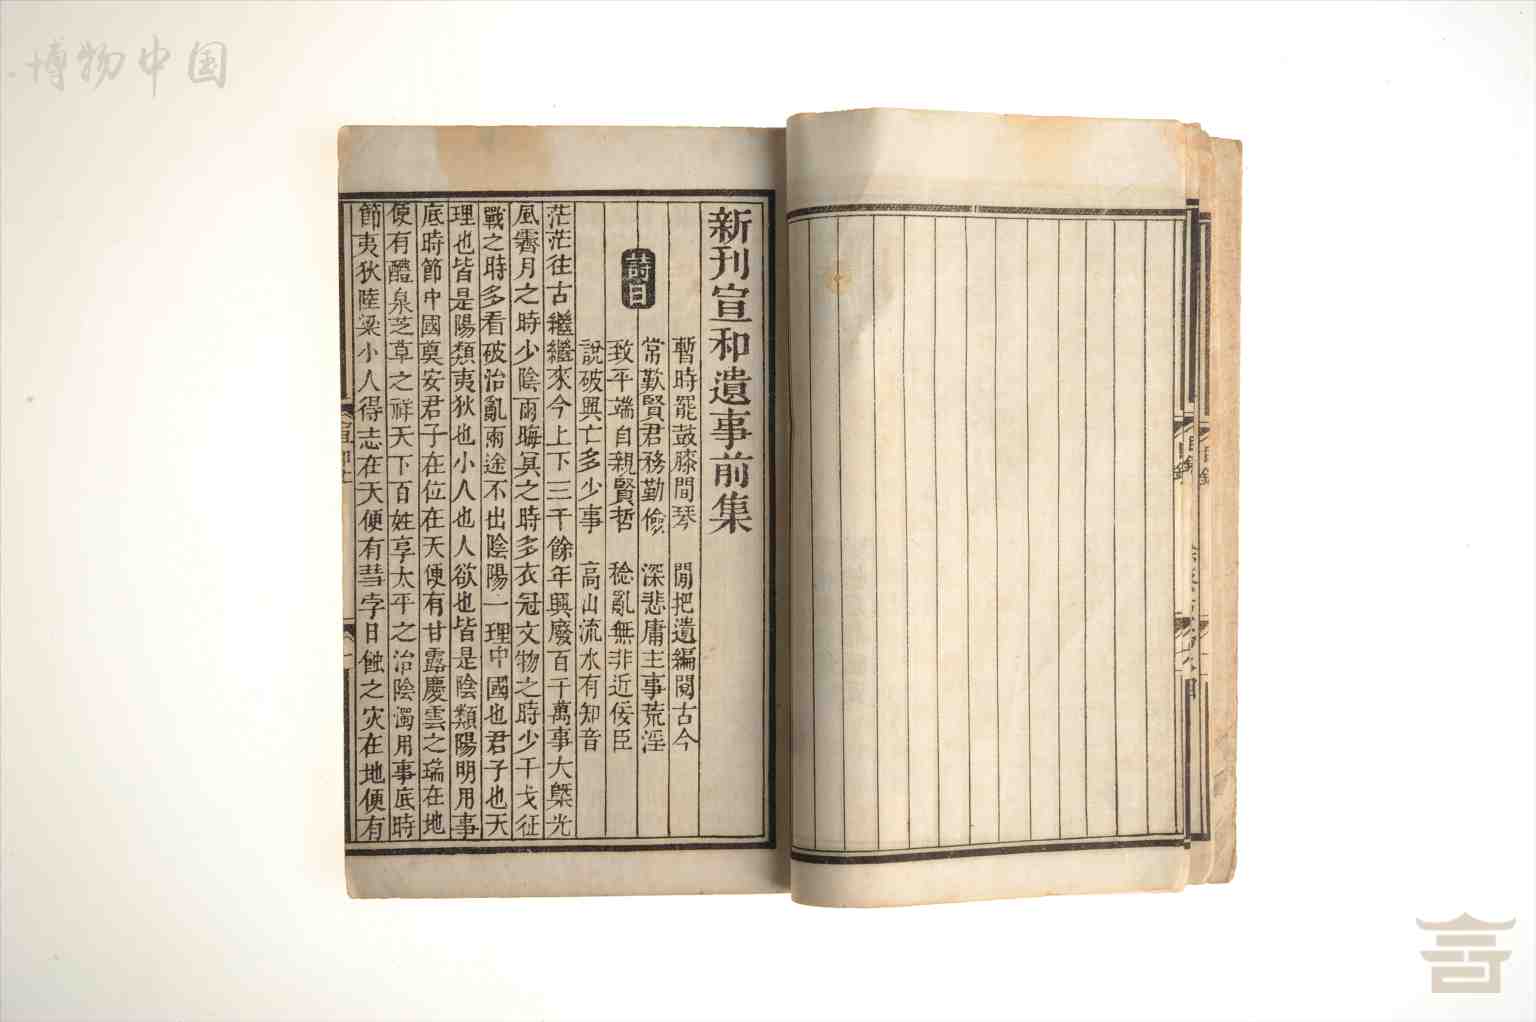 博物中国
新刊宣和遺事前集
暫時罷鼓膝間琴 閒把遺編閱古今
常歎賢君務勤儉 深悲庸主事荒淫
詩曰
致平端自親賢哲 稔亂無非近佞臣
說破興亡多少事 高山流水有知音
茫茫往古繼繼來今上下三千餘年興廢百千萬事大槩光
風霽月之時少陰雨晦冥之時多衣冠文物之時少干戈征
戰之時多看破治亂兩途不出陰陽一理中國也君子也天
理也皆是陽類夷狄也小人也人欲也皆是陰類陽明用事
底時節中國奠安君子在位在天便有甘露慶雲之瑞在地
便有醴泉芝草之祥天下百姓享太平之治陰濁用事底時
節夷狄陸梁小人得志在天便有彗孛日蝕之灾在地便有
目錄